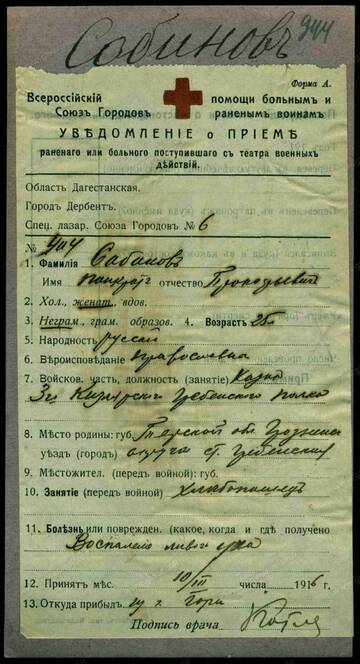 Сабиновъ 944
Форма А.
Всероссійскій Союзъ Городовъ помощи больнымъ и раненымъ воинамъ
УВѢДОМЛЕНІЕ о ПРІЕМѢ
раненаго или больного поступившаго съ театра военныхъ
дѣйствій.
Область Дагестанская.
Городъ Дербентъ.
Спец. лазар. Союза Городовъ № 6
№ 944
1. Фамилія Сабиновъ
Имя Панкратъ отчество Прокофьевич
2. Хол., женат. вдов.
3. Неграм., грам. образов. 4. Возрастъ 25 л.
5. Народность русскій
6. Вѣроисповѣданіе православный
7. Войсков. часть, должность (занятіе) Казак
3го Кизлярского Гребенского полка
8. Мѣсто родины: губ. Терской об. Грозненс
уѣздъ (городъ) округа ст.
9. Мѣстожител. (передъ войной): губ.
10. Занятіе (передъ войной) хлебопашецъ
11. Болѣзнь или поврежден. (какое, когда и гдѣ получено
Воспаление уха
12. Принятъ мѣс. 10/III числа 1916 г.
13. Откуда прибылъ из г. Гори
Подпись врача